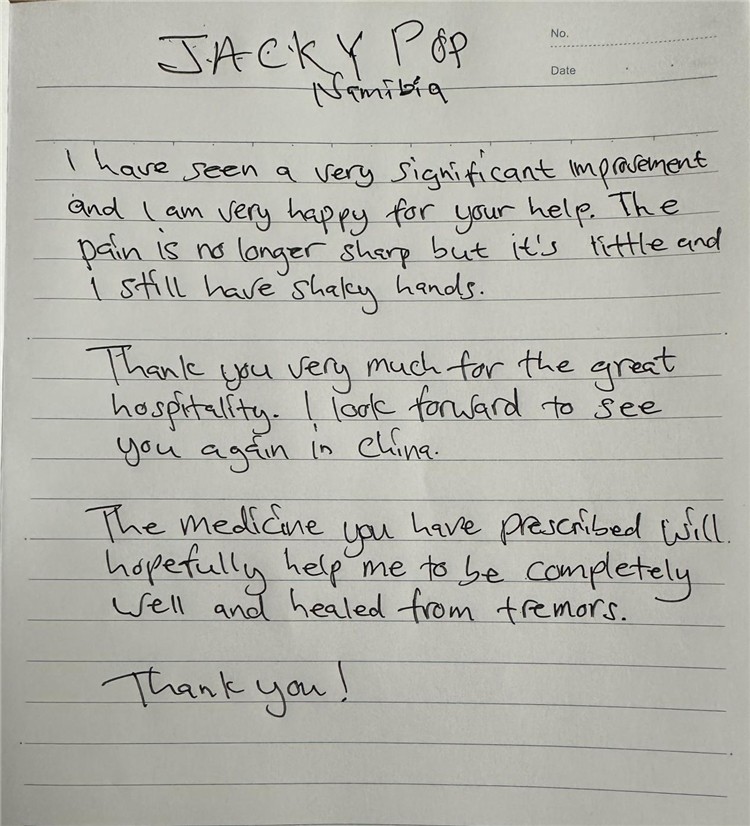 JACKY POP
Namibia
No.
Date
I have seen a very significant improvement
and I am very happy for your help. The
pain is no longer sharp but it's little and
I still have shaky hands.
Thank you very much for the great
hospitality. I look forward to see
you again in China.
The medicine you have prescribed will
hopefully help me to be completely
well and healed from tremors.
Thank you!